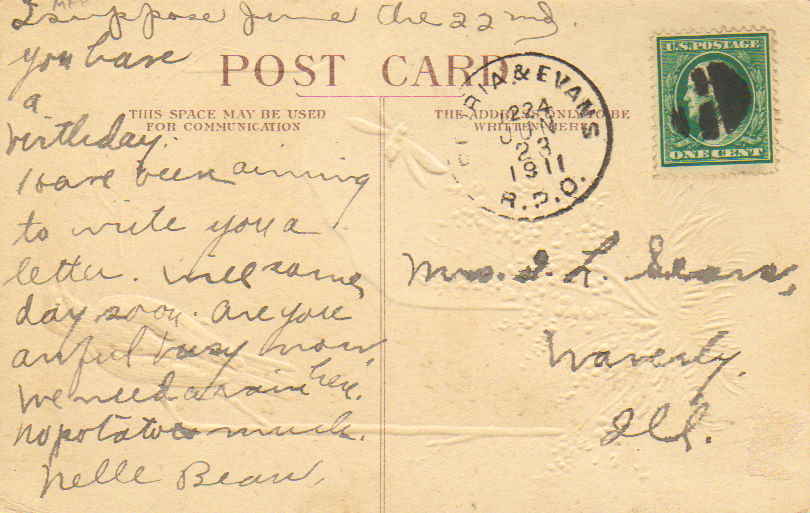 I suppose June the 22nd.
you have
a
birthday.
Have been aiming
to write you a
letter. will some
day soon. Are you
awful busy now.
We need a rain here.
no potatoes much.
Nelle Bean.
POST CARD
THIS SPACE MAY BE USED
FOR COMMUNICATION
THE ADDRESS ONLY TO BE
WRITTEN HERE
RIA & EVANS
224
JUN
23
1911
R.P.O.
U.S. POSTAGE
ONE CENT
Mrs. I. L. Sears,
Waverly.
Ill.